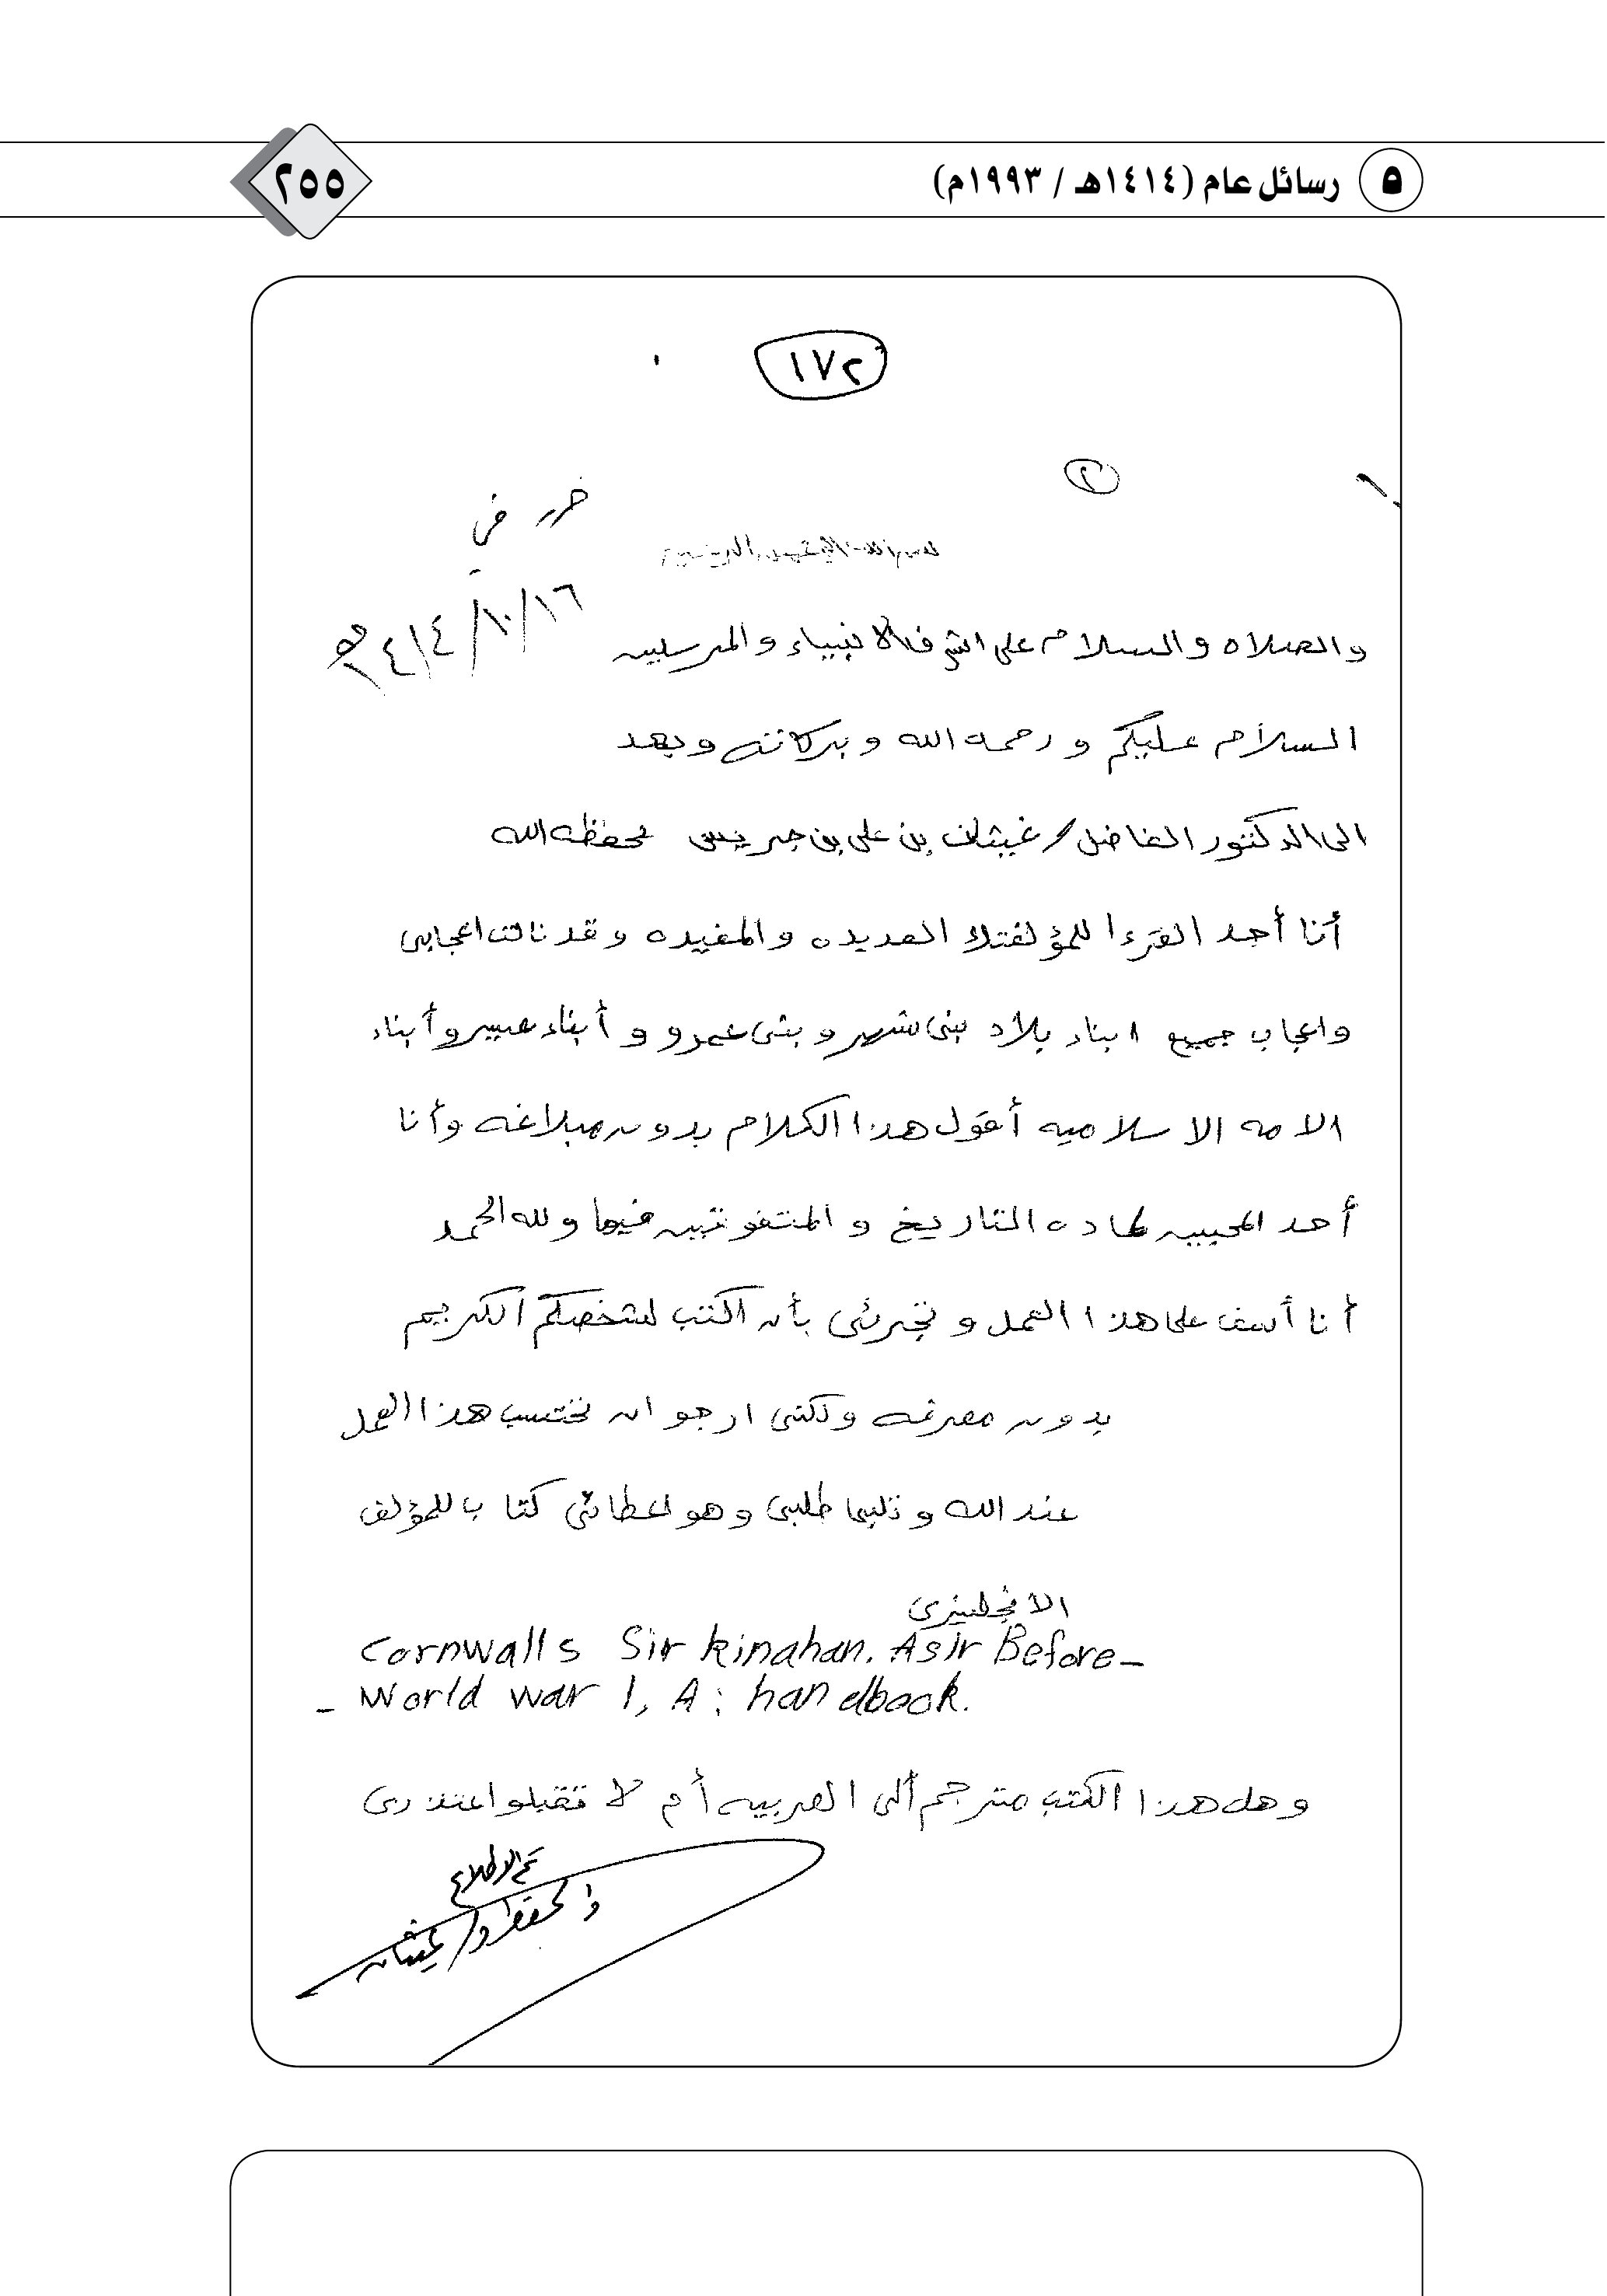 ٥ رسائل عام (١٤١٤هـ / ١٩٩٣م)
٢٥٥
١٧٢
٢
حرر في
١٤١٤/١٠/١٦هـ
والصلاه والسلام على اشرف الانبياء والمرسلين
السلام عليكم ورحمه الله وبركاته وبعد
الى الدكتور الفاضل / غيثان بن علي بن جريس يحفظه الله
أنا أحد القرءا للمؤلفتك العديده والمفيده وقد نالت اعجابي
واعجاب جميع ابناء بلاد بني شهر وبني عمرو وأبناء عسير وأبناء
الامه الاسلاميه أقول هذا الكلام بدون مبلاغه وأنا
أحد المحبين لماده التاريخ والمتفوقين فيها ولله الحمد
أنا أسف على هذا العمل وتجرئي بأن اكتب لشخصكم الكريم
بدون معرفه ولكني ارجو ان تحتسب هذا العمل
عند الله وتلبيا طلبي وهو اعطائي كتاب للمؤلف
الانجليزي
Cornwalls Sir kinahan. Asir Before-
- World war 1, A: handbook.
وهل هذا الكتب مترجم ألى العربيه أم لا تقبلو اعتذري
تم الاطلاع
والحفظ د/ غيثان